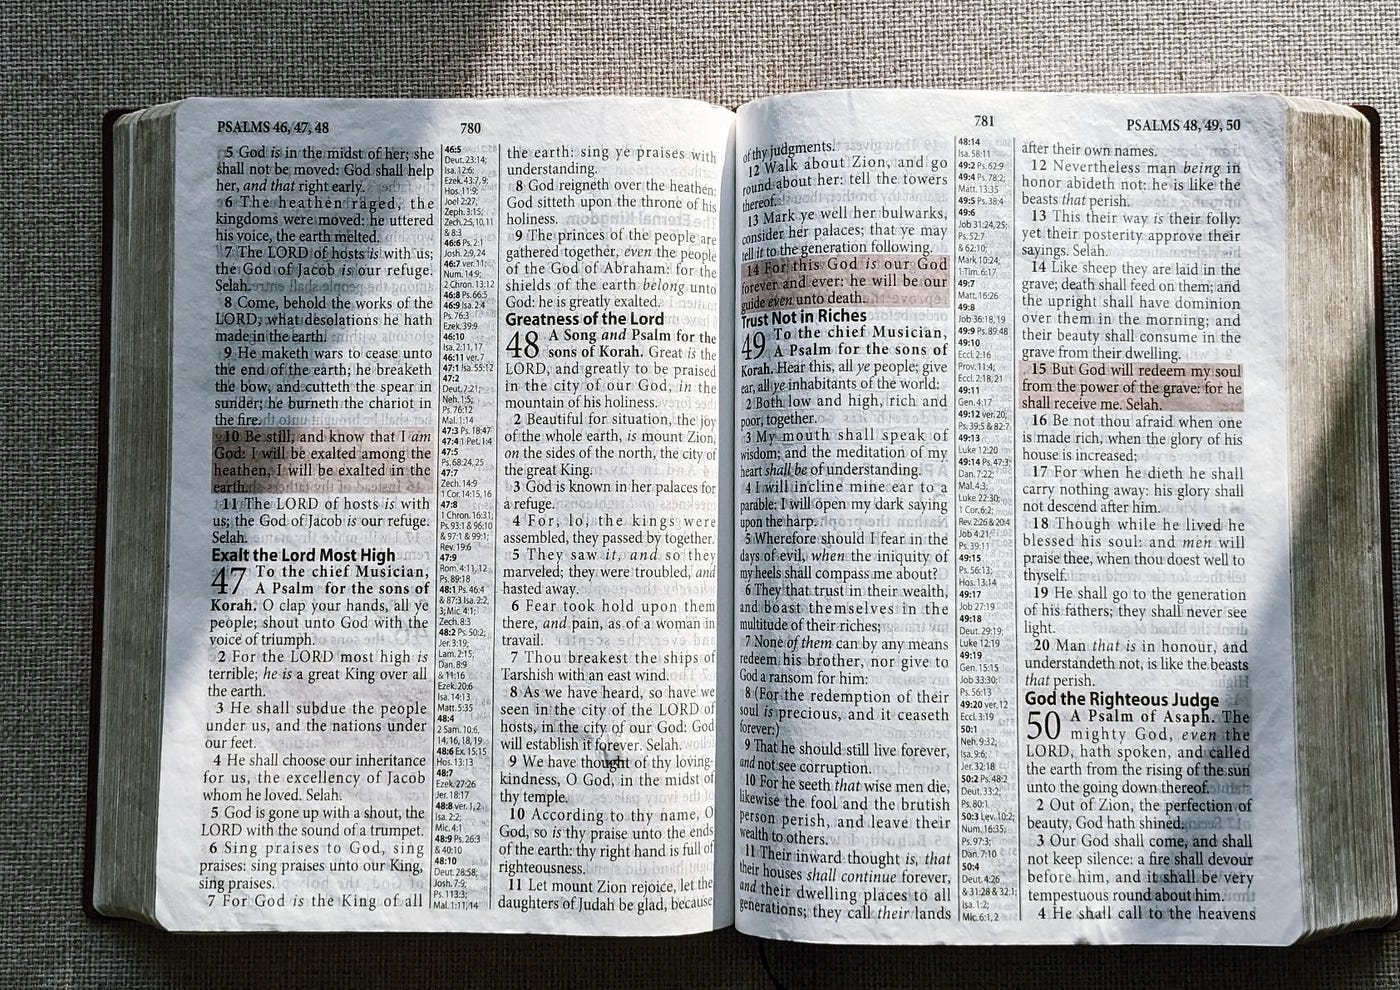 PSALMS 46, 47, 48
780
5 God is in the midst of her; she
shall not be moved: God shall help
her, and that right early.
6 The heathen raged, the
kingdoms were moved: he uttered
his voice, the earth melted.
7 The LORD of hosts is with us;
the God of Jacob is our refuge.
Selah.
8 Come, behold the works of the
LORD, what desolations he hath
made in the earth.
9 He maketh wars to cease unto
the end of the earth; he breaketh
the bow, and cutteth the spear in
sunder; he burneth the chariot in
the fire.
10 Be still, and know that I am
God: I will be exalted among the
heathen, I will be exalted in the
earth.
11 The LORD of hosts is with
us; the God of Jacob is our refuge.
Selah.
Exalt the Lord Most High
47 To the chief Musician,
A Psalm for the sons of
Korah. O clap your hands, all ye
people; shout unto God with the
voice of triumph.
2 For the LORD most high is
terrible; he is a great King over all
the earth.
3 He shall subdue the people
under us, and the nations under
our feet.
4 He shall choose our inheritance
for us, the excellency of Jacob
whom he loved. Selah.
5 God is gone up with a shout, the
LORD with the sound of a trumpet.
6 Sing praises to God, sing
praises: sing praises unto our King,
sing praises.
7 For God is the King of all
46:5
Deut. 23:14;
Isa. 12:6;
Ezek. 43:7, 9;
Hos. 11:9;
Joel 2:27;
Zeph. 3:15;
Zech. 2:5, 10, 11
& 8:3
46:6 Ps. 2:1
Josh. 2:9, 24
46:7 ver. 11;
Num. 14:9;
2 Chron. 13:12
46:8 Ps. 66:5
46:9 Isa. 2:4
Ps. 76:3
Ezek. 39:9
46:10
Isa. 2:11, 17
46:11 ver. 7
47:1 Isa. 55:12
47:2
Deut. 7:21;
Neh. 1:5;
Ps. 76:12
Mal. 1:14
47:3 Ps. 18:47
47:4 1 Pet. 1:4
47:5
Ps. 68:24, 25
47:7
Zech. 14:9
1 Cor. 14:15, 16
47:8
1 Chron. 16:31;
Ps. 93:1 & 96:10
& 97:1 & 99:1;
Rev. 19:6
47:9
Rom. 4:11, 12
Ps. 89:18
48:1 Ps. 46:4
& 87:3 Isa. 2:2,
3; Mic. 4:1;
Zech. 8:3
48:2 Ps. 50:2;
Jer. 3:19;
Lam. 2:15;
Dan. 8:9
& 11:16
Ezek. 20:6
Isa. 14:13
Matt. 5:35
48:4
2 Sam. 10:6,
14, 16, 18, 19
48:6 Ex. 15:15
Hos. 13:13
48:7
Ezek. 27:26
Jer. 18:17
48:8 ver. 1, 2
Isa. 2:2;
Mic. 4:1
48:9 Ps. 26:3
& 40:10
48:10
Deut. 28:58;
Josh. 7:9;
Ps. 113:3;
Mal. 1:11, 14
the earth: sing ye praises with
understanding.
8 God reigneth over the heathen:
God sitteth upon the throne of his
holiness.
9 The princes of the people are
gathered together, even the people
of the God of Abraham: for the
shields of the earth belong unto
God: he is greatly exalted.
Greatness of the Lord
48 A Song and Psalm for the
sons of Korah. Great is the
LORD, and greatly to be praised
in the city of our God, in the
mountain of his holiness.
2 Beautiful for situation, the joy
of the whole earth, is mount Zion,
on the sides of the north, the city of
the great King.
3 God is known in her palaces for
a refuge.
4 For, lo, the kings were
assembled, they passed by together.
5 They saw it, and so they
marveled; they were troubled, and
hasted away.
6 Fear took hold upon them
there, and pain, as of a woman in
travail.
7 Thou breakest the ships of
Tarshish with an east wind.
8 As we have heard, so have we
seen in the city of the LORD of
hosts, in the city of our God: God
will establish it forever. Selah.
9 We have thought of thy loving-
kindness, O God, in the midst of
thy temple.
10 According to thy name, O
God, so is thy praise unto the ends
of the earth: thy right hand is full of
righteousness.
11 Let mount Zion rejoice, let the
daughters of Judah be glad, because
781
PSALMS 48, 49, 50
of thy judgments.
12 Walk about Zion, and go
round about her: tell the towers
thereof.
13 Mark ye well her bulwarks,
consider her palaces; that ye may
tell it to the generation following.
14 For this God is our God
forever and ever: he will be our
guide even unto death.
Trust Not in Riches
49 To the chief Musician,
A Psalm for the sons of
Korah. Hear this, all ye people; give
ear, all ye inhabitants of the world:
2 Both low and high, rich and
poor, together.
3 My mouth shall speak of
wisdom; and the meditation of my
heart shall be of understanding.
4 I will incline mine ear to a
parable: I will open my dark saying
upon the harp.
5 Wherefore should I fear in the
days of evil, when the iniquity of
my heels shall compass me about?
6 They that trust in their wealth,
and boast themselves in the
multitude of their riches;
7 None of them can by any means
redeem his brother, nor give to
God a ransom for him:
8 (For the redemption of their
soul is precious, and it ceaseth
forever:)
9 That he should still live forever,
and not see corruption.
10 For he seeth that wise men die,
likewise the fool and the brutish
person perish, and leave their
wealth to others.
11 Their inward thought is, that
their houses shall continue forever,
and their dwelling places to all
generations; they call their lands
48:14
Isa. 58:11
49:2 Ps. 62:9
49:4 Ps. 78:2;
Matt. 13:35
49:5 Ps. 38:4
49:6
Job 31:24, 25;
Ps. 52:7
& 62:10;
Mark 10:24,
1 Tim. 6:17
49:7
Matt. 16:26
49:8
Job 36:18, 19
49:9 Ps. 89:48
49:10
Eccl. 2:16
Prov. 11:4;
Eccl. 2:18, 21
49:11
Gen. 4:17
49:12 ver. 20;
Ps. 39:5 & 82:7
49:13
Luke 12:20
49:14 Ps. 47:3;
Dan. 7:22;
Mal. 4:3;
Luke 22:30;
1 Cor. 6:2;
Rev. 2:26 & 20:4
Job 4:21;
Ps. 39:11
49:15
Ps. 56:13;
Hos. 13:14
49:17
Job 27:19
49:18
Deut. 29:19;
Luke 12:19
49:19
Gen. 15:15
Job 33:30;
Ps. 56:13
49:20 ver. 12
Eccl. 3:19
50:1
Neh. 9:32;
Isa. 9:6;
Jer. 32:18
50:2 Ps. 48:2
Deut. 33:2;
Ps. 80:1
50:3 Lev. 10:2;
Num. 16:35;
Ps. 97:3;
Dan. 7:10
50:4
Deut. 4:26
& 31:28 & 32:1;
Isa. 1:2;
Mic. 6:1, 2
after their own names.
12 Nevertheless man being in
honor abideth not: he is like the
beasts that perish.
13 This their way is their folly:
yet their posterity approve their
sayings. Selah.
14 Like sheep they are laid in the
grave; death shall feed on them; and
the upright shall have dominion
over them in the morning; and
their beauty shall consume in the
grave from their dwelling.
15 But God will redeem my soul
from the power of the grave: for he
shall receive me. Selah.
16 Be not thou afraid when one
is made rich, when the glory of his
house is increased;
17 For when he dieth he shall
carry nothing away: his glory shall
not descend after him.
18 Though while he lived he
blessed his soul: and men will
praise thee, when thou doest well to
thyself.
19 He shall go to the generation
of his fathers; they shall never see
light.
20 Man that is in honour, and
understandeth not, is like the beasts
that perish.
God the Righteous Judge
50 A Psalm of Asaph. The
mighty God, even the
LORD, hath spoken, and called
the earth from the rising of the sun
unto the going down thereof.
2 Out of Zion, the perfection of
beauty, God hath shined.
3 Our God shall come, and shall
not keep silence: a fire shall devour
before him, and it shall be very
tempestuous round about him.
4 He shall call to the heavens